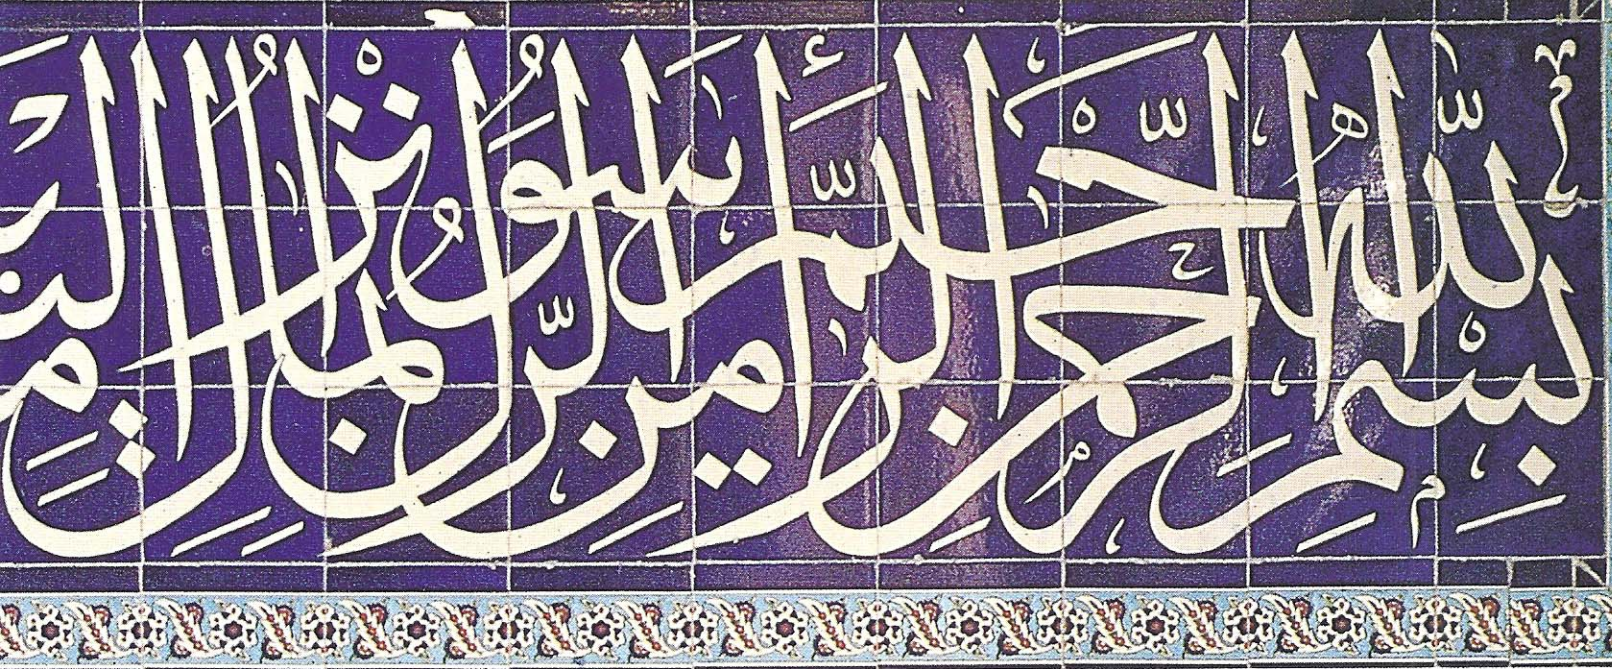 بِسْمِ اللّٰهِ الرَّحْمٰنِ الرَّحِيمِ آمَنَ الرَّسُولُ بِمَا أُنْزِلَ إِلَيْهِ مِنْ